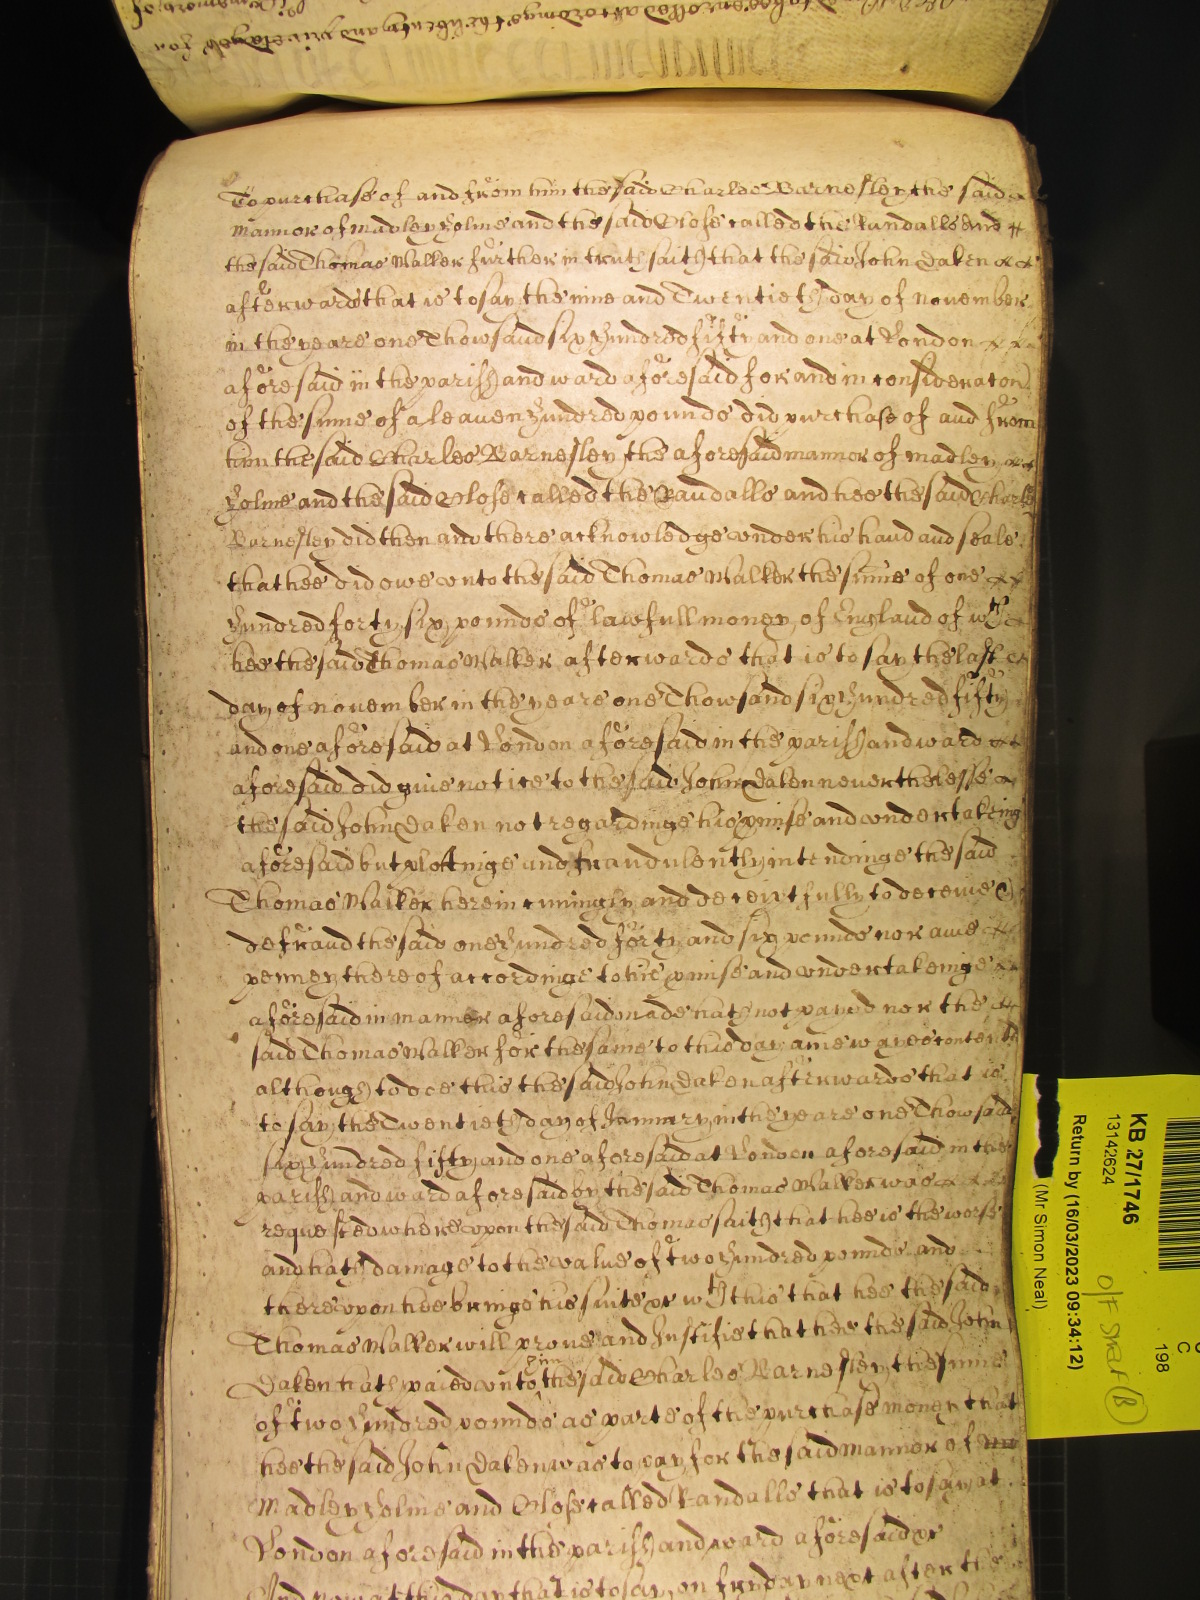 To purchase of and from him the said Charles Barnesley the said
Mannor of Madley Holme and the said Close called the Randalls And
the said Thomas Walker further in truth saith that the said John Daken
afterwards that is to say the nine and Twentieth day of November
in the yeare one Thowsand six Hundred fifty and one at London
aforesaid in the parish and ward aforesaid for and in consideracon
of the sume of a leaven Hundred pounds did purchase of and from
him the said Charles Barnesley the aforesaid mannor of madley
Holme and the said Close called the Randalls and hee the said Charles
Barnesley did then and there acknowledge under his hand and seale
that hee did owe unto the said Thomas Walker the sume of one
Hundred forty six pounds of lawfull money of England of wch
hee the said Thomas Walker afterwards that is to say the last
day of november in the yeare one Thowsand six Hundred fifty
and one aforesaid at London aforesaid in the parish and ward
aforesaid did give notice to the said John Daken neverthelesse
the said John Daken not regardinge his pmise and undertaking
aforesaid but plottinge and fraudulently intendinge the said
Thomas Walker herein cuningly and deceiptfully to deceive &
defraud the said one Hundred forty and six pounds nor anie
penney thereof accordinge to his pmise and undertakeinge
aforesaid in manner aforesaid made hath not payed nor the
said Thomas Walker for the same to this day anie wayes contented
although to doe this the said John Daken afterwards that is
to say the Twentieth day of January in the yeare one Thowsand
six Hundred fifty and one aforesaid at London aforesaid in the
parish and ward aforesaid by the said Thomas Walker was
requested whereupon the said Thomas saith that hee is the worse
and hath damage to the value of two Hundred pounds and
thereupon hee brings his suite &c wth this that hee the said
Thomas Walker will prove and Justifie that hee the said John
Daken hath paied unto him the said Charles Barnesley the sume
of two Hundred pounds as parte of the purchase money that
hee the said John Daken was to pay for the said mannor of
Madley Holme and Close called Randalls that is to say at
London aforesaid in the parish and ward aforesaid &c
And now at this day that is to say on fryday next after the
KB 27/1746
13142624
Return by (16/03/2023 09:34:12)
(Mr Simon Neal)
C
198
O/F Shelf (B)